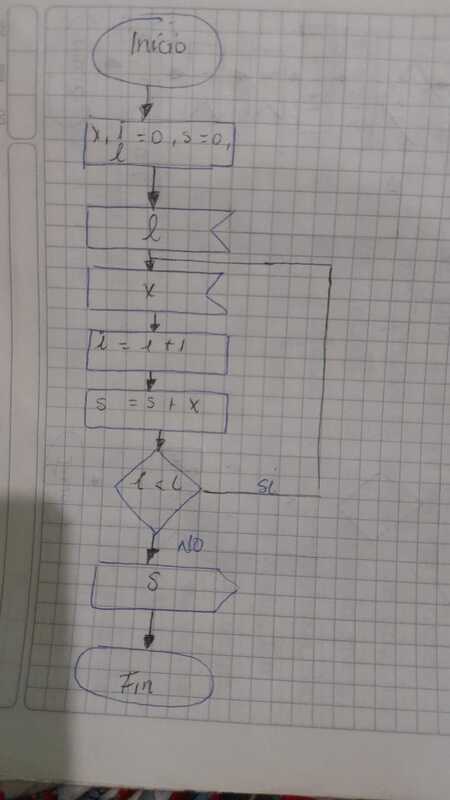 Inicio
x, i = 0, s = 0,
l
l
x
i = i + 1
s = s + x
i < l
Si
NO
S
Fin